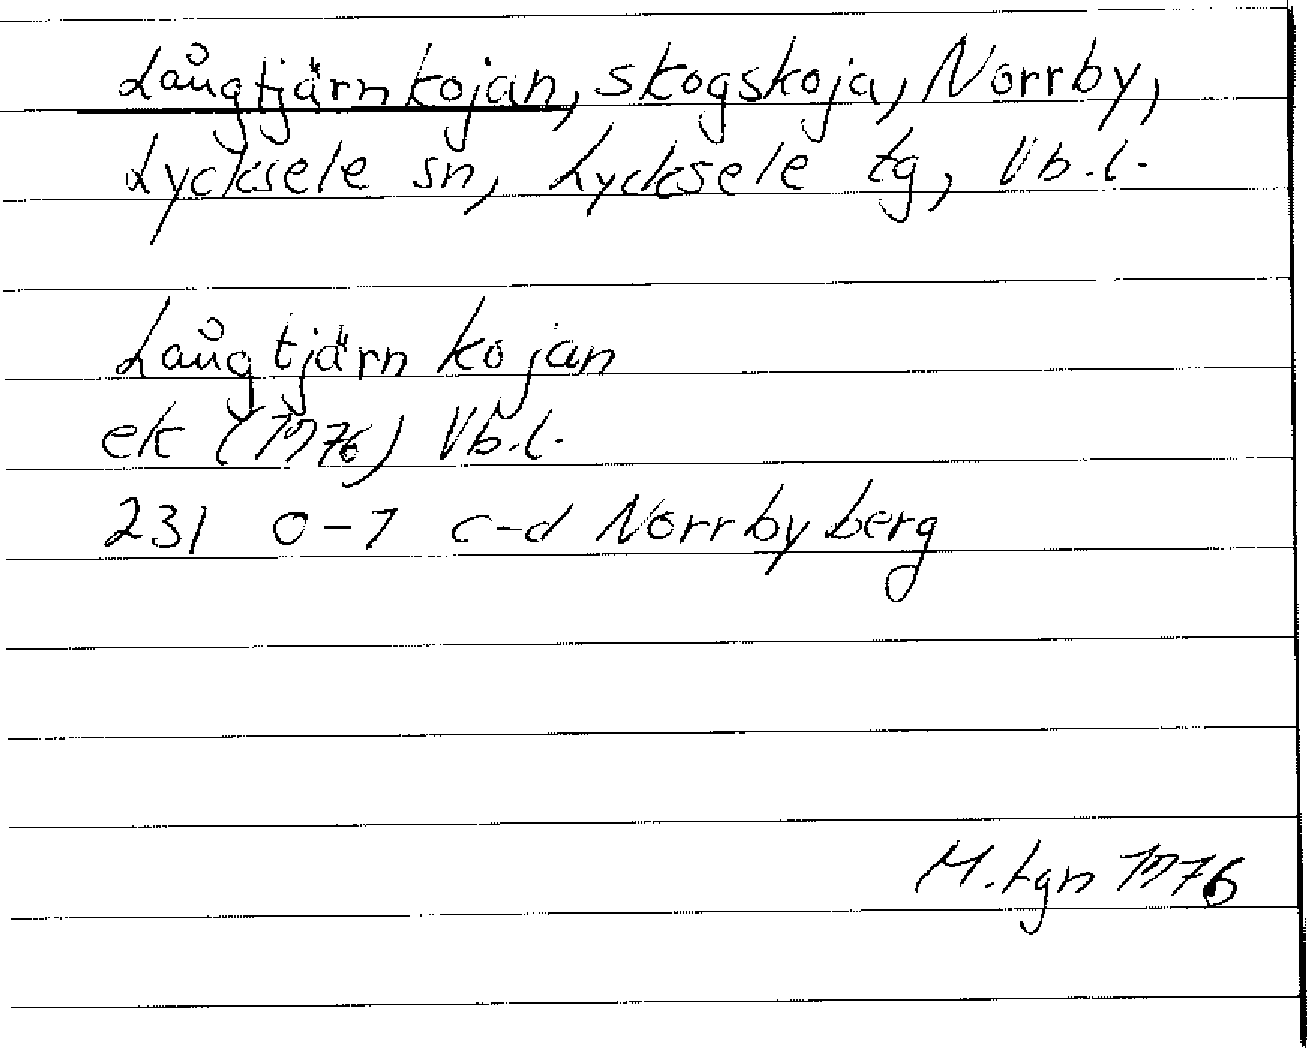 Långtjärnkojan, skogskoja, Norrby,
Lycksele sn, Lycksele tg, Vb.l.
Långtjärnkojan
ek (1976) Vb.l.
231 0-1 c-d Norrbyberg
M.Lgn 1976